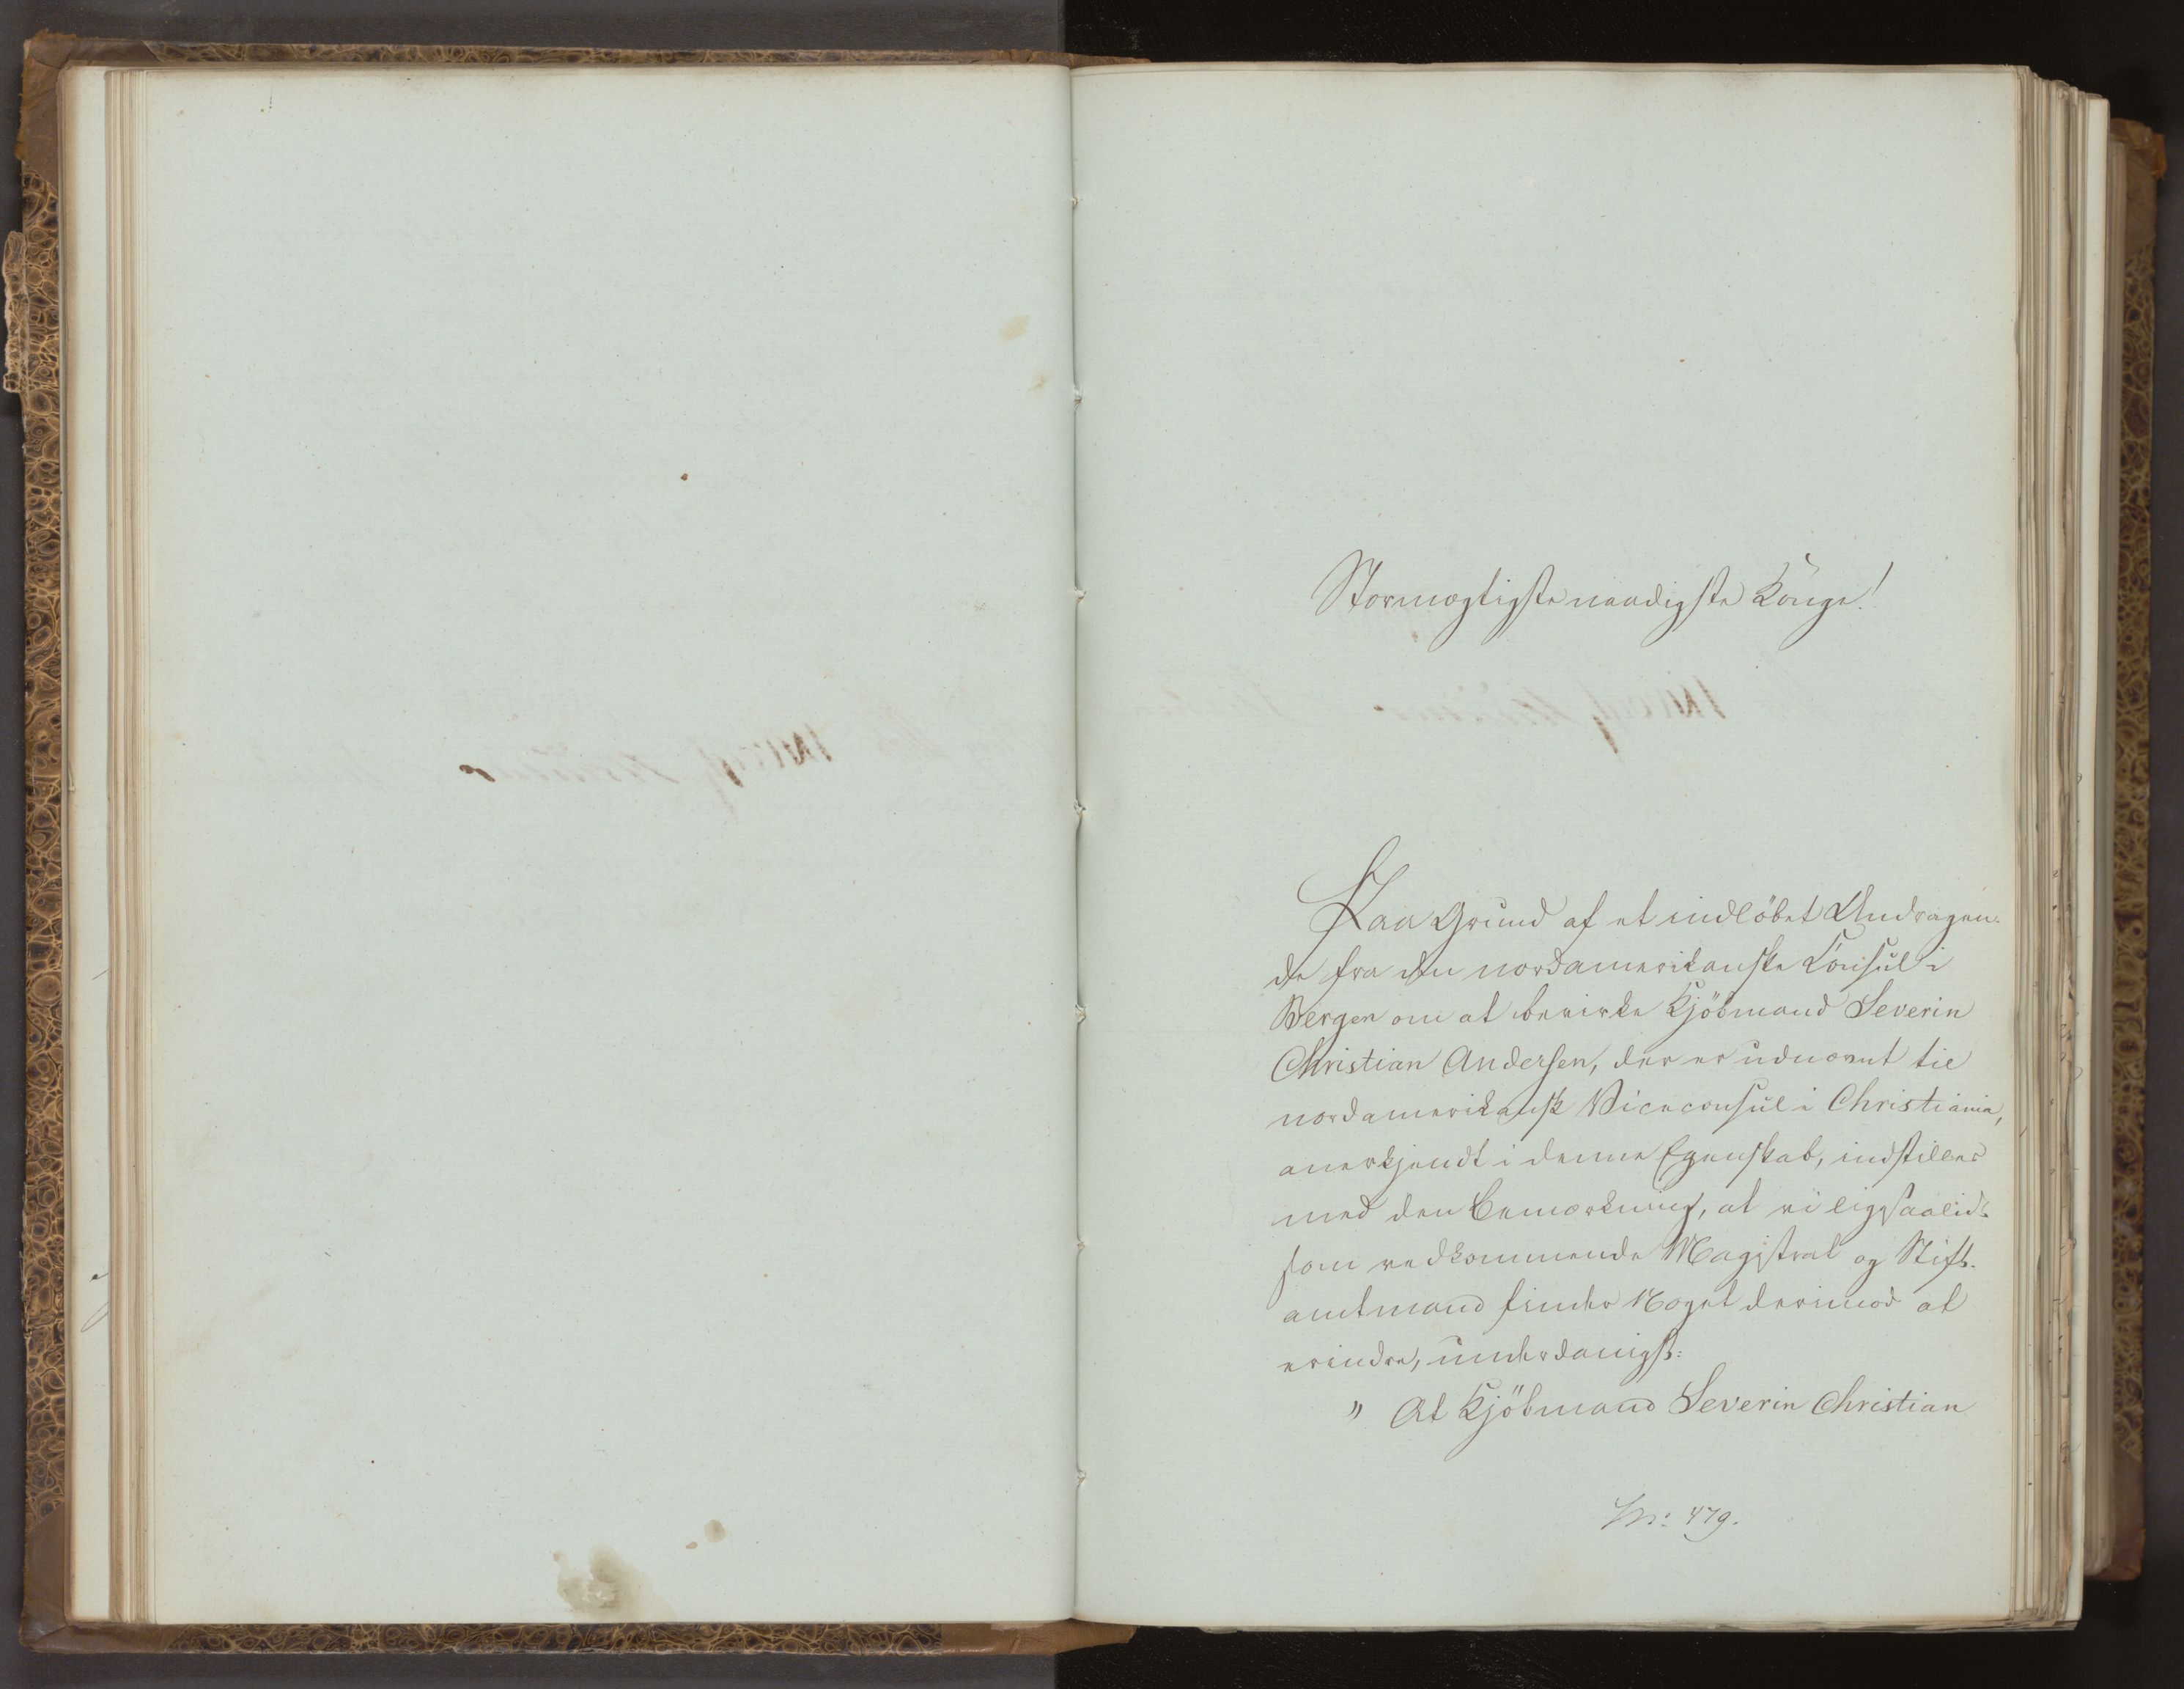 Stormægtigste naadigste Konge!
Paa Grund af et indløbet Andragen-
de fra den nordamerikanske Konsul i
Bergen om at bevirke Kjöbmand Severin
Christian Andersen, der er udnævnt til
nordamerikansk Viceconsul i Christiania,
anerkjendt i denne Egenskab, indstilles
med den Bemærkning, at vi ligesaalidt
som vedkommende Magistrat og Stift-
amtmand finder Noget derimod at
erindre, underdanigst:
" At Kjöbmand Severin Christian
No: 479.